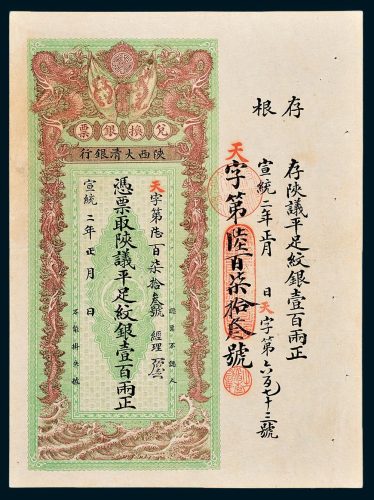 存根
存陝議平足紋銀壹百兩正
宣統二年正月 日天字第六百七十三號
天字第陸百柒拾叁號
兌換銀票
陝西大清銀行
認票不認人
天字第陸百柒拾叁號 經理
憑票取陝議平足紋銀壹百兩正
宣統二年正月 日